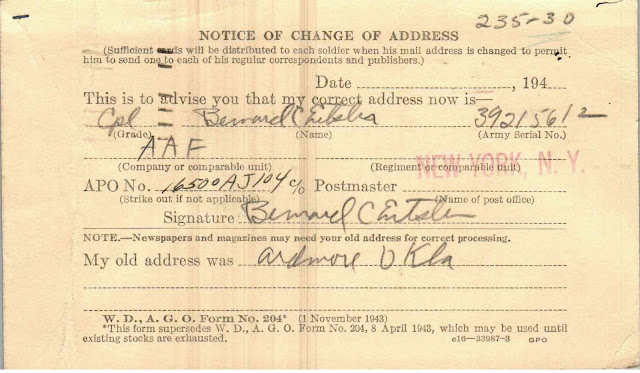 235-30
NOTICE OF CHANGE OF ADDRESS
(Sufficient cards will be distributed to each soldier when his mail address is changed to permit
him to send one to each of his regular correspondents and publishers.)
Date , 194
This is to advise you that my correct address now is
Cpl Bernard C 39215612
(Grade) (Name) (Army Serial No.)
AAF
(Company or comparable unit) (Regiment or comparable unit)
NEW YORK, N. Y.
APO No. 16500 AJ104 c/o Postmaster
(Strike out if not applicable) (Name of post office)
Signature Bernard C
NOTE.—Newspapers and magazines may need your old address for correct processing.
My old address was ardmore Okla
W. D., A. G. O. Form No. 204* (1 November 1943)
*This form supersedes W. D., A. G. O. Form No. 204, 8 April 1943, which may be used until
existing stocks are exhausted. c16—33987-3 GPO